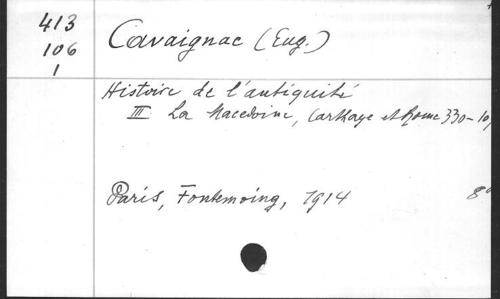 413
106
1
Cavaignac (Eug.)
Histoire de l'antiquité
III La Macedoine, Carthage et Rome 330-10
Paris, Fontemoing, 1914 8°